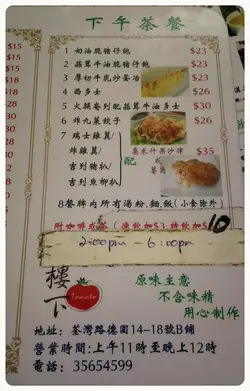 下午茶餐
1 奶油脆豬仔飽 $23
2 蒜茸牛油脆豬仔飽 $23
3 厚切牛乳沙蛋治 $23
4 西多士 $26
5 火腿奄列配蒜茸牛油多士 $30
6 炸九菜餃子 $26
7 瑞士雞翼/
炸雞翼/
吉列豬扒/
吉列魚柳扒
配
粟米什果沙律 $35
薯角
8 餐牌內所有湯粉,麵,飯(小食除外)
附咖啡或茶(凍飲加$3,特飲加$10
2:00pm - 6:00pm
樓下
Tomato
原味主意
不含味精
用心制作
地址: 荃灣路德圍14-18號B鋪
營業時間:上午11時至晚上12時
電話: 35654599
$15
$15
$15
$18